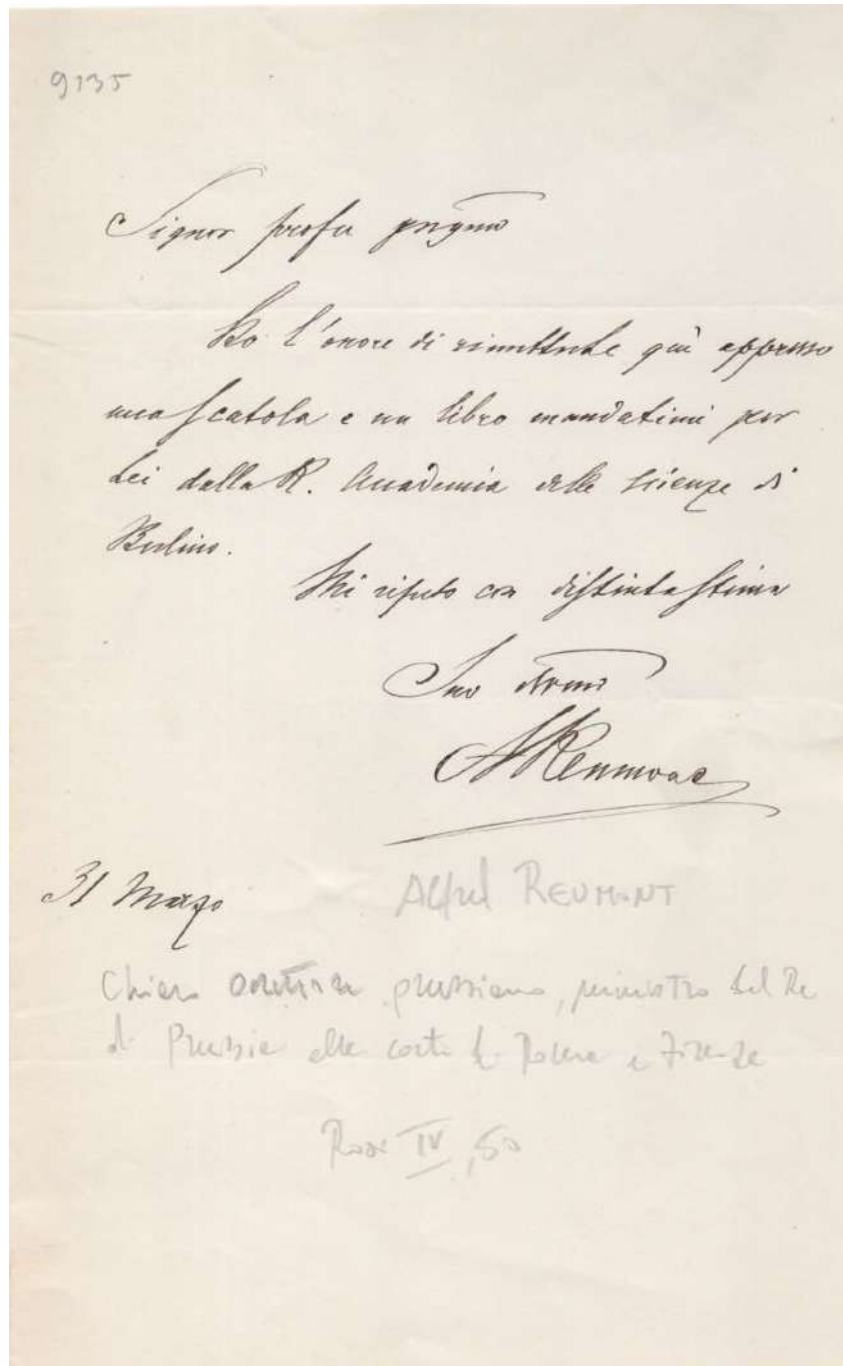 9135
Signor profre pregmo
Ho l'onore di rimetterLe qui appresso
una scatola e un libro mandatimi per
Lei dalla R. Accademia delle scienze di
Berlino.
Mi ripeto con distinta stima
Suo devmo
AReumont
31 Marzo
Alfred REUMONT
Chiaro prussiano, ministro del Re
di Prussia alle corti di Roma e Firenze
IV, 50